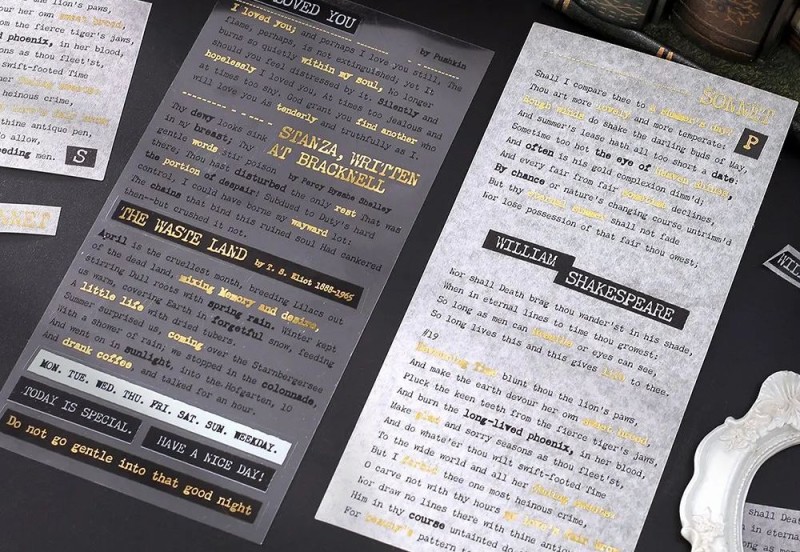 on the lion's paws,
our her own sweet brood,
from the fierce tiger's jaws,
d phoenix, in her blood,
sons as thou fleet'st,
swift-footed Time
heinous crime,
thine antique pen,
do allow,
eeding men.
S
LOVED YOU
by Pushkin
I loved you; and perhaps I love you still, The
flame, perhaps, is not extinguished; yet It
burns so quietly within my soul, No longer
should you feel distressed by it. Silently and
hopelessly I loved you, At times too jealous and
at times too shy. God grant you find another who
will love you As tenderly and truthfully as I.
STANZA, WRITTEN
AT BRACKNELL
by Percy Bysshe Shelley
Thy dewy looks sink
in my breast; Thy
gentle words stir poison
there; Thou hast disturbed the only rest That was
the portion of despair! Subdued to Duty's hard
control, I could have borne my wayward lot:
The chains that bind this ruined soul Had cankered
then--but crushed it not.
THE WASTE LAND by T. S. Eliot 1888-1965
April is the cruellest month, breeding Lilacs out
of the dead land, mixing Memory and desire,
stirring Dull roots with spring rain. Winter kept
us warm, covering Earth in forgetful snow, feeding
A little life with dried tubers.
Summer surprised us, coming over the Starnbergersee
With a shower of rain; we stopped in the colonnade,
And went on in sunlight, into the Hofgarten, 10
And drank coffee, and talked for an hour.
MON. TUE. WED. THU. FRI. SAT. SUN. WEEKDAY.
TODAY IS SPECIAL.
HAVE A NICE DAY!
Do not go gentle into that good night
SONNET
P
Shall I compare thee to a summer's day?
Thou art more lovely and more temperate:
Rough winds do shake the darling buds of May,
And summer's lease hath all too short a date:
Sometime too hot the eye of heaven shines,
And often is his gold complexion dimm'd;
And every fair from fair sometime declines,
By chance or nature's changing course untrimm'd
But thy eternal summer shall not fade
Nor lose possession of that fair thou owest;
WILLIAM
SHAKESPEARE
Nor shall Death brag thou wander'st in his shade,
When in eternal lines to time thou growest;
So long as men can breathe or eyes can see,
So long lives this and this gives life to thee.
#19
Devouring Time blunt thou the lion's paws,
And make the earth devour her own sweet brood,
Pluck the keen teeth from the fierce tiger's jaws,
And burn the long-lived phoenix, in her blood,
Make glad and sorry seasons as thou fleet'st,
And do whate'er thou wilt swift-footed Time
To the wide world and all her fading sweets:
But I forbid thee one most heinous crime,
O carve not with thy hours my love's fair brow,
Nor draw no lines there with thine antique
Him in thy course untainted do
For beauty's pattern to
shall Death
in eternal